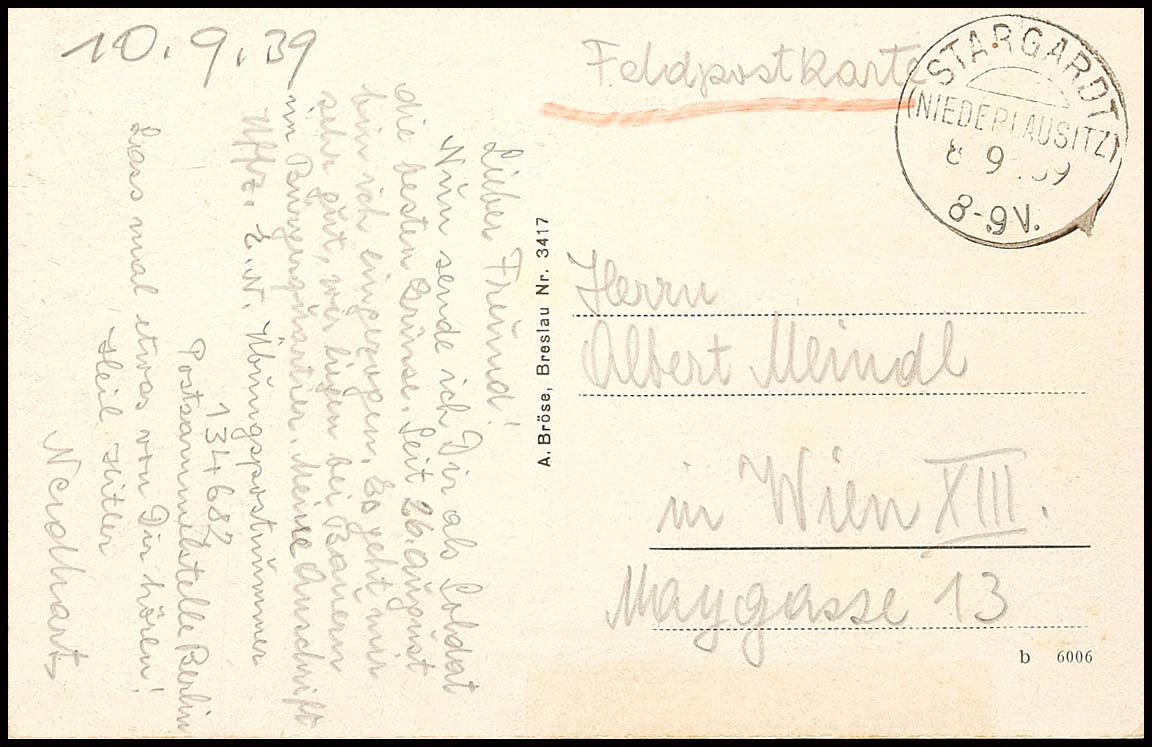 10.9.39
Lieber Freund!
Nun sende ich Dir als Soldat
die besten Grüsse. Seit 26. August
bin ich eingezogen. Es geht mir
sehr gut, wir liegen bei Bauern
im Bürgerquartier. Meine Anschrift
Uffz. E. N. Übungspostnummer
134682
Postsammelstelle Berlin
Lass mal etwas von Dir hören!
Heil Hitler
Neidhart
A. Bröse, Breslau Nr. 3417
Feldpostkarte
STARGARDT
(NIEDERLAUSITZ)
8.9.39
8-9V.
Herrn
Albert Meindl
in Wien XIII.
Maygasse 13
b 6006